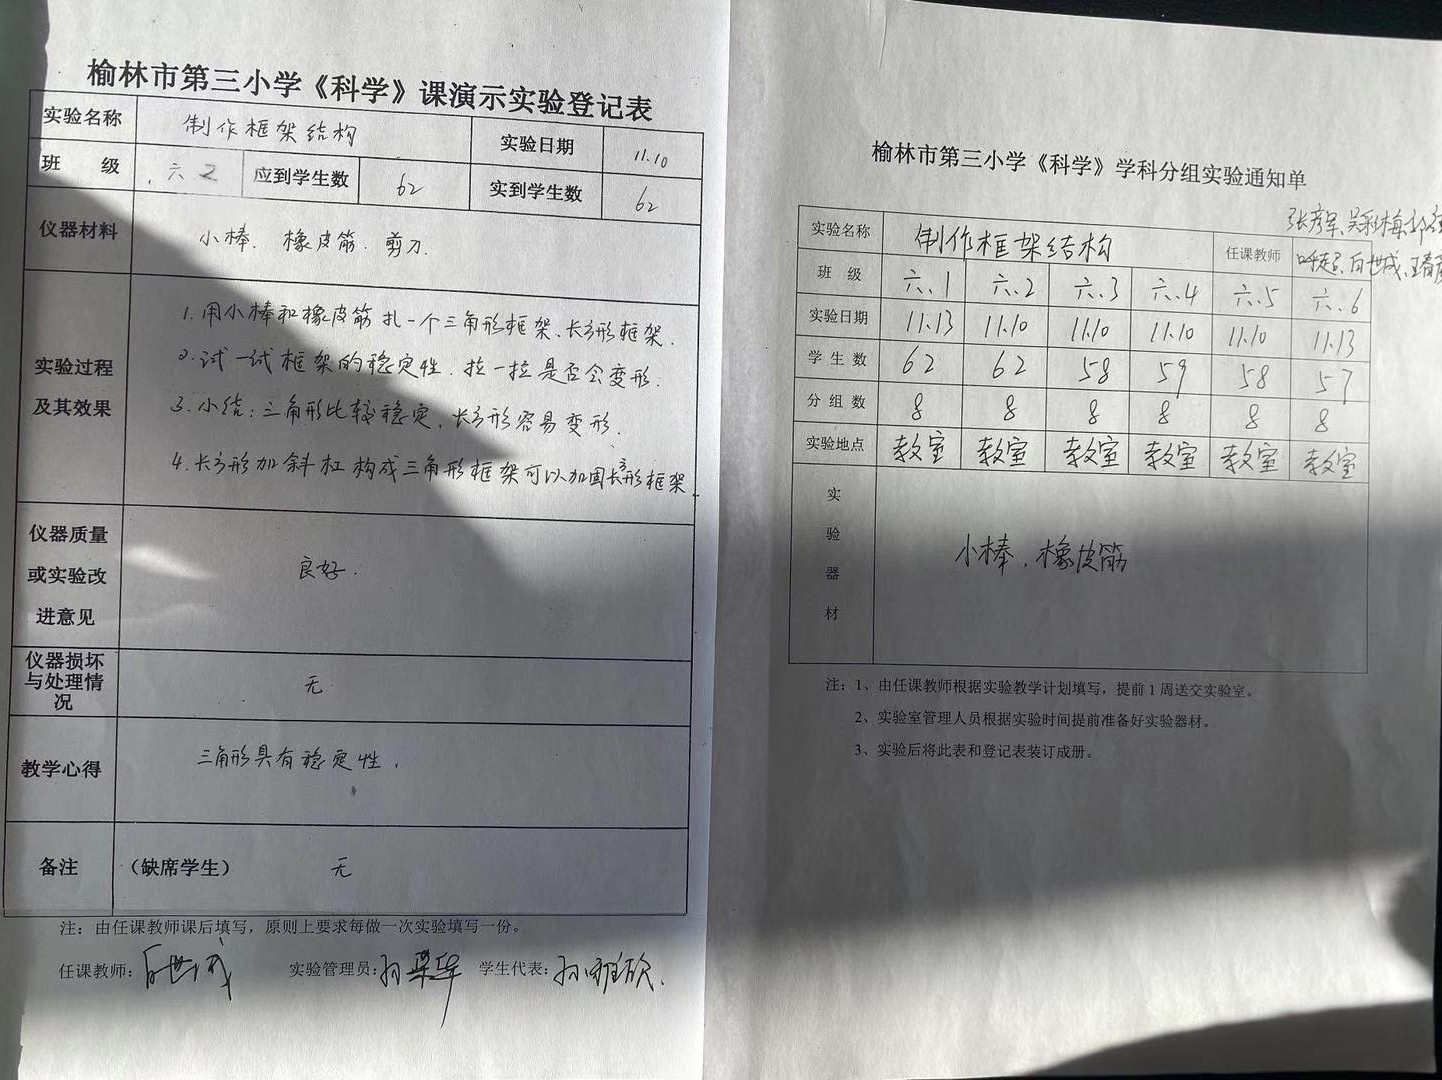 榆林市第三小学《科学》课演示实验登记表
实验名称 制作框架结构 实验日期 11.10
班 级 六2 应到学生数 62 实到学生数 62
仪器材料 小棒、橡皮筋、剪刀.
实验过程
及其效果
1.用小棒和橡皮筋扎一个三角形框架、长方形框架.
2.试一试框架的稳定性.拉一拉是否会变形.
3.小结:三角形比较稳定、长方形容易变形.
4.长方形加斜杠构成三角形框架可以加固长方形框架
仪器质量
或实验改
进意见
良好.
仪器损坏
与处理情
况
无
教学心得 三角形具有稳定性.
备注 (缺席学生) 无
注:由任课教师课后填写,原则上要求每做一次实验填写一份。
任课教师:白世成 实验管理员:孙 学生代表:孙雅欣.
榆林市第三小学《科学》学科分组实验通知单
张彦军、吴彩梅
实验名称 制作框架结构 任课教师 白世成、王春
班 级 六、1 六、2 六、3 六、4 六、5 六、6
实验日期 11.13 11.10 11.10 11.10 11.10 11.13
学生数 62 62 58 59 58 57
分组数 8 8 8 8 8 8
实验地点 教室 教室 教室 教室 教室 教室
实
验
器
材
小棒、橡皮筋
注:1、由任课教师根据实验教学计划填写,提前1周送交实验室。
2、实验室管理人员根据实验时间提前准备好实验器材。
3、实验后将此表和登记表装订成册。